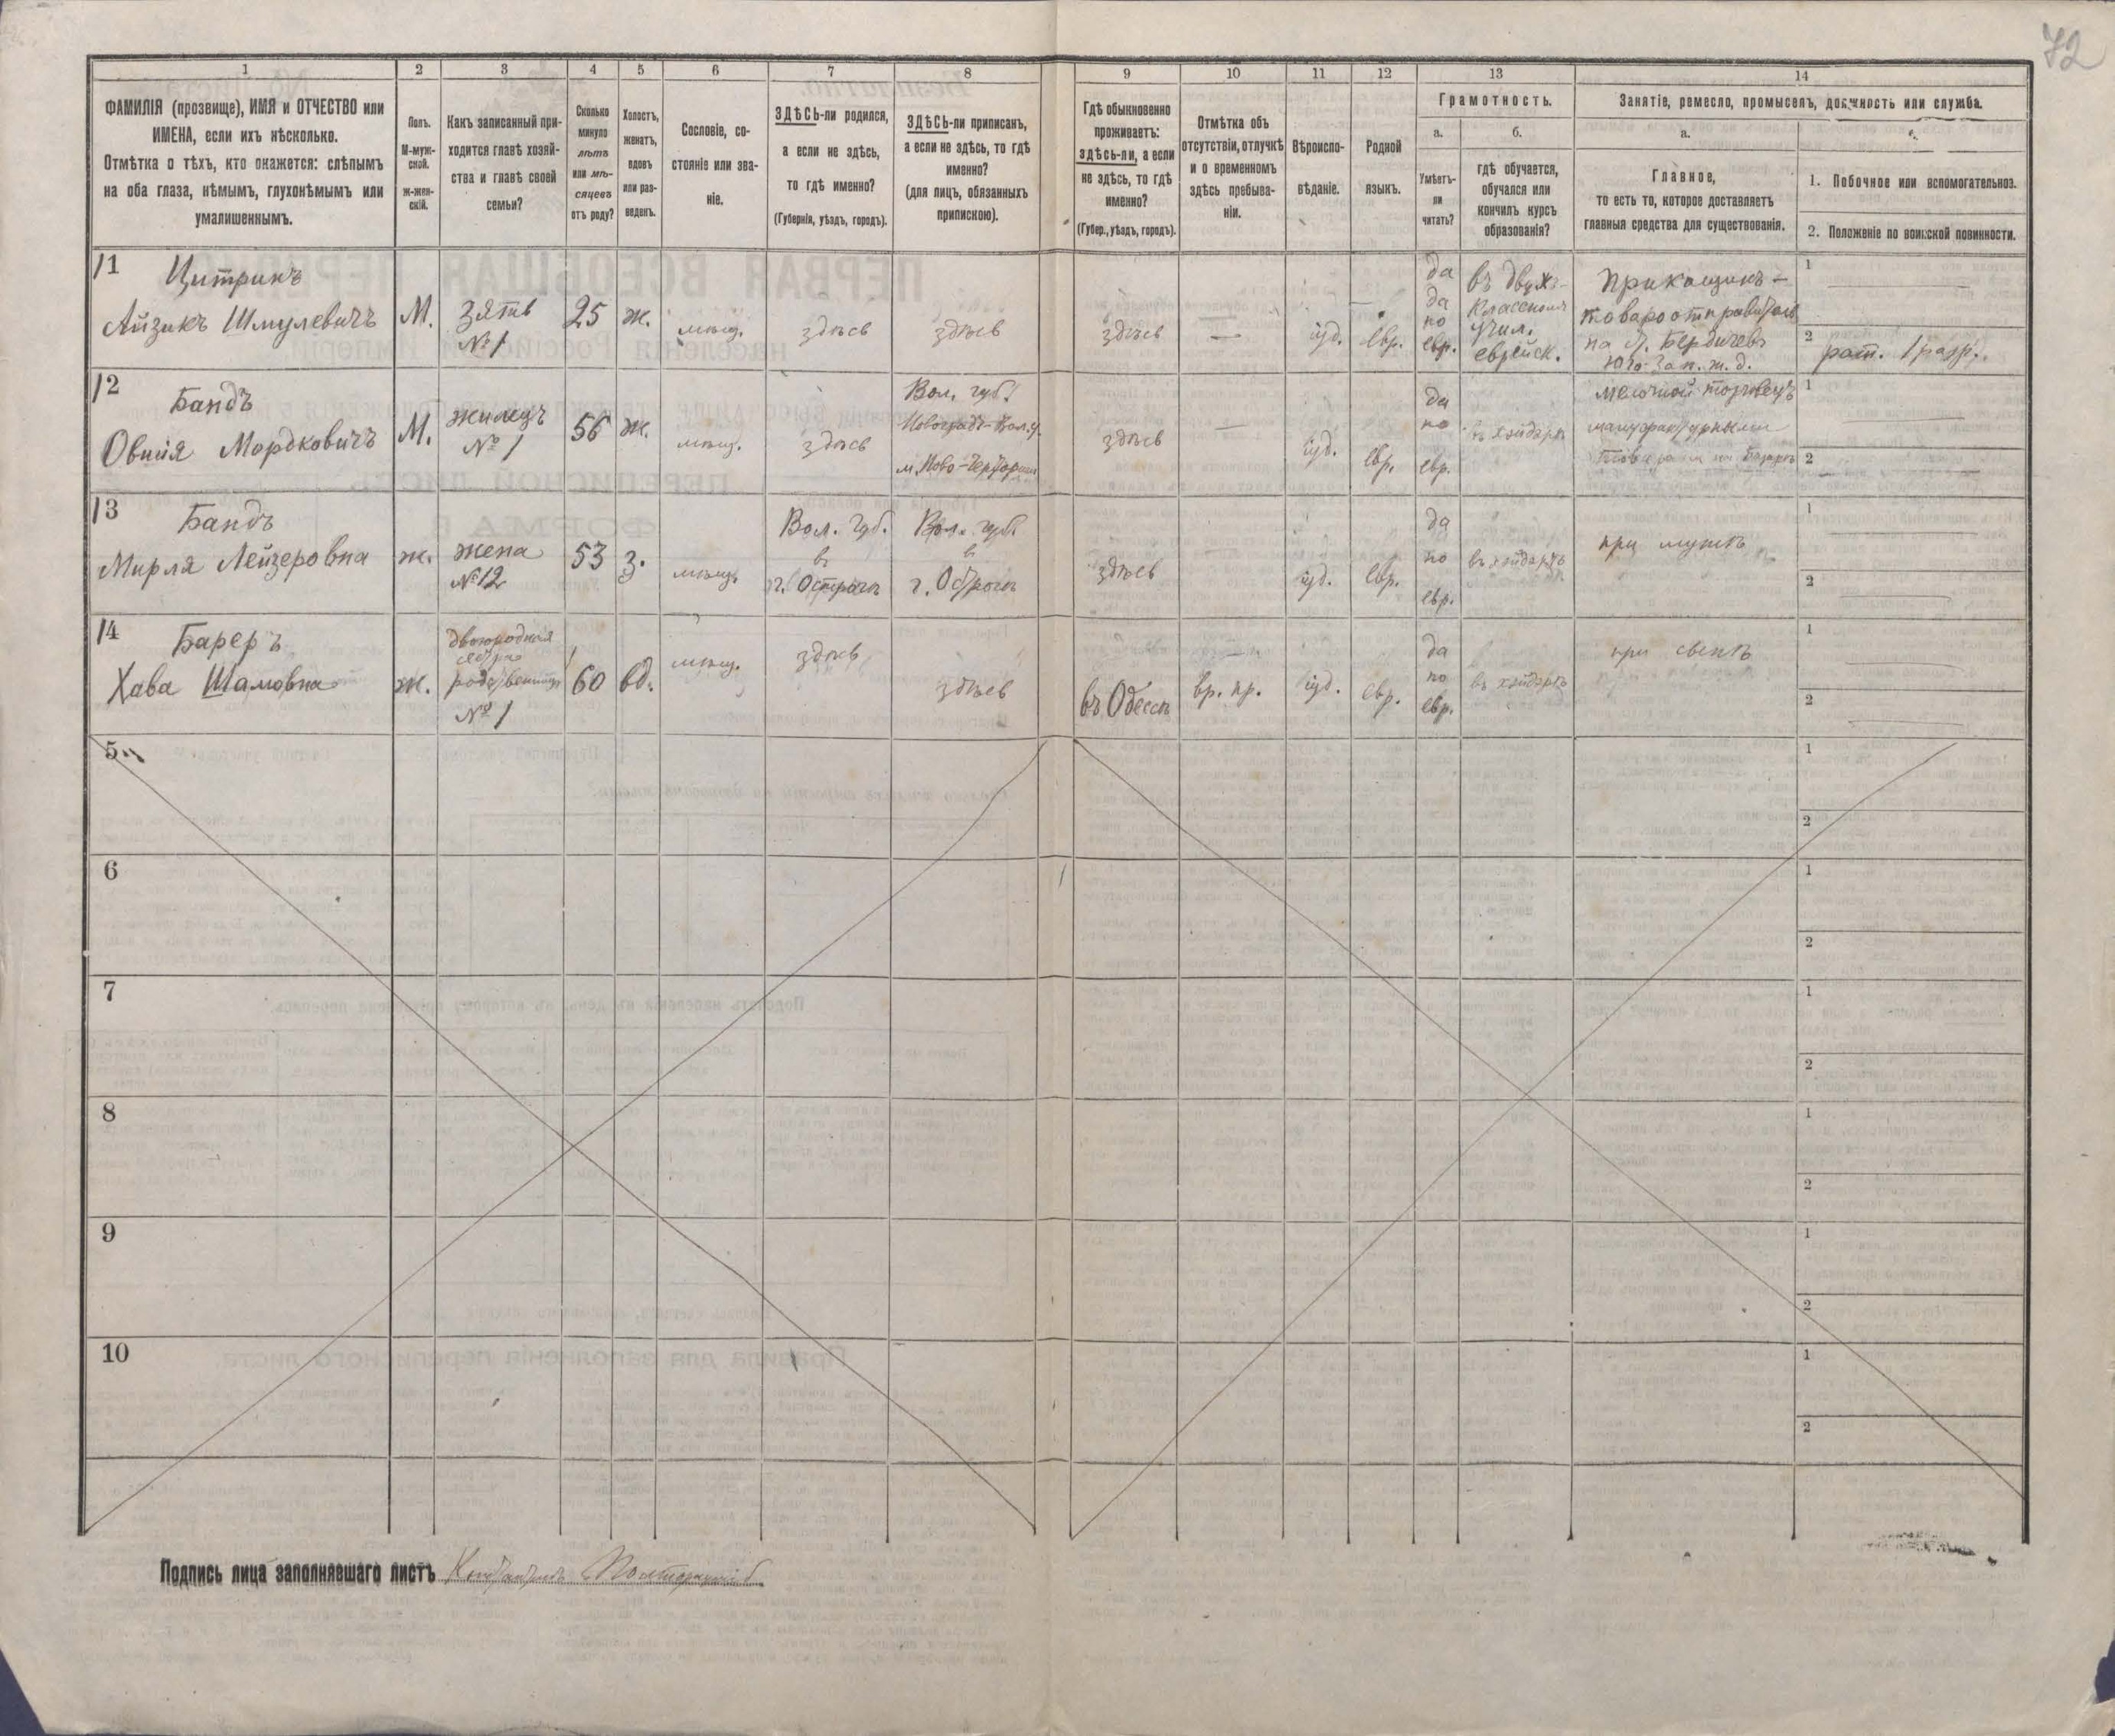 72
1 2 3 4 5 6 7 8 9 10 11 12 13 14
ФАМИЛІЯ (прозвище), ИМЯ и ОТЧЕСТВО или
ИМЕНА, если ихъ нѣсколько.
Отмѣтка о тѣхъ, кто окажется: слѣпымъ
на оба глаза, нѣмымъ, глухонѣмымъ или
умалишеннымъ.
Полъ.
М-муж-
ской.
ж-жен-
скій.
Какъ записанный при-
ходится главѣ хозяй-
ства и главѣ своей
семьи?
Сколько
минуло
лѣтъ
или мѣ-
сяцевъ
отъ роду?
Холостъ,
женатъ,
вдовъ
или раз-
веденъ.
Сословіе, со-
стояніе или зва-
ніе.
ЗДѢСЬ-ли родился,
а если не здѣсь,
то гдѣ именно?
(Губернія, уѣздъ, городъ).
ЗДѢСЬ-ли приписанъ,
а если не здѣсь, то гдѣ
именно?
(для лицъ, обязанныхъ
припискою).
Гдѣ обыкновенно
проживаетъ:
здѣсь-ли, а если
не здѣсь, то гдѣ
именно?
(Губер., уѣздъ, городъ).
Отмѣтка объ
отсутствіи, отлучкѣ
и о временномъ
здѣсь пребыва-
ніи.
Вѣроиспо-
вѣданіе.
Родной
языкъ.
Грамотность.
а.
Умѣетъ-
ли
читать?
б.
гдѣ обучается,
обучался или
кончилъ курсъ
образованія?
Занятіе, ремесло, промыселъ, должность или служба.
а.
Главное,
то есть то, которое доставляетъ
главныя средства для существованія.
1. Побочное или вспомогательное.
2. Положеніе по воинской повинности.
11
Цитринъ
Айзикъ Шмулевичъ
М.
Зять
№ 1
25
ж.
мѣщ.
здѣсь
здѣсь
здѣсь
—
іуд.
евр.
да
да
по
евр.
въ двух-
классномъ
учил.
еврейск.
Прикащикъ-
товароотправитель
на ст. Бердичевъ
Юго-Зап. ж. д.
1
2
рат. 1 разр.
12
Бандъ
Овшія Мордковичъ
М.
жилецъ
№ 1
56
ж.
мѣщ.
здѣсь
Вол. губ.
Новоградъ-Вол. у.
здѣсь
—
іуд.
евр.
да
по
евр.
въ хэйдерѣ
мелочной торговецъ
мануфактурными
1
2
13
Бандъ
Мирля Лейзеровна
ж.
жена
№ 12
53
з.
мѣщ.
Вол. губ.
въ
г. Острогѣ
Вол. губ.
въ
г. Острогѣ
здѣсь
—
іуд.
евр.
да
по
евр.
въ хэйдерѣ
при мужѣ
1
2
14
Бареръ
Хава Шамовна
ж.
двоюродная
сестра
№ 1
60
вд.
мѣщ.
здѣсь
здѣсь
въ Одессѣ
вр. пр.
іуд.
евр.
да
по
евр.
въ хэйдерѣ
1
2
5
1
2
6
1
2
7
1
2
8
1
2
9
1
2
10
1
2
Подпись лица заполнявшаго листъ